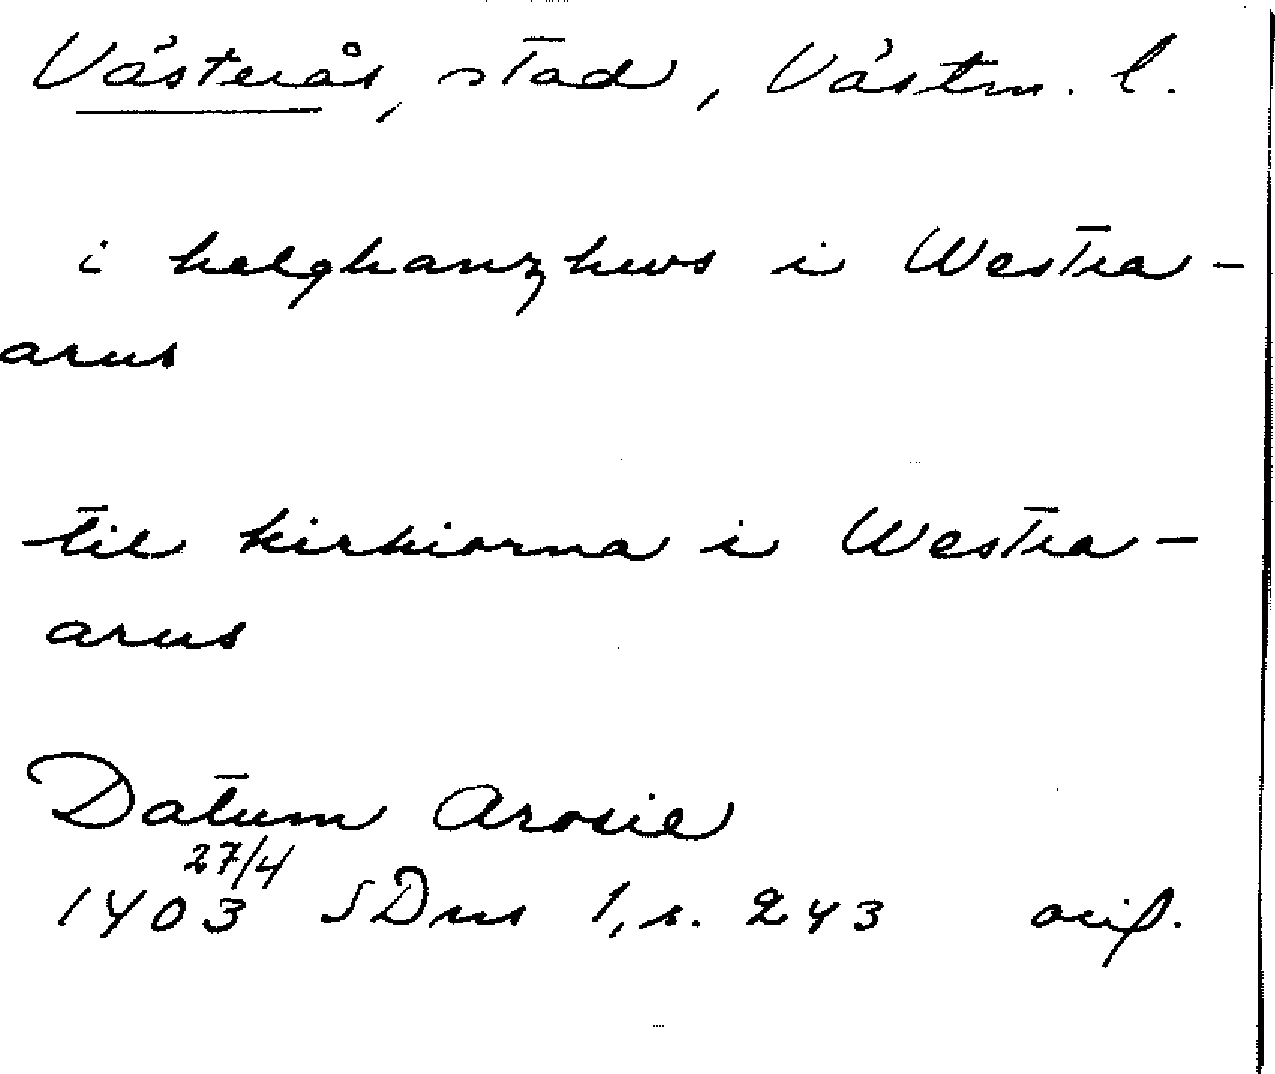 Västerås, stad, Västm. l.
i helghanzhws i Westra-
arus
til kirkiorna i Westra-
arus
Datum Arosie
27/4
1403 SDns 1, s. 243 orig.